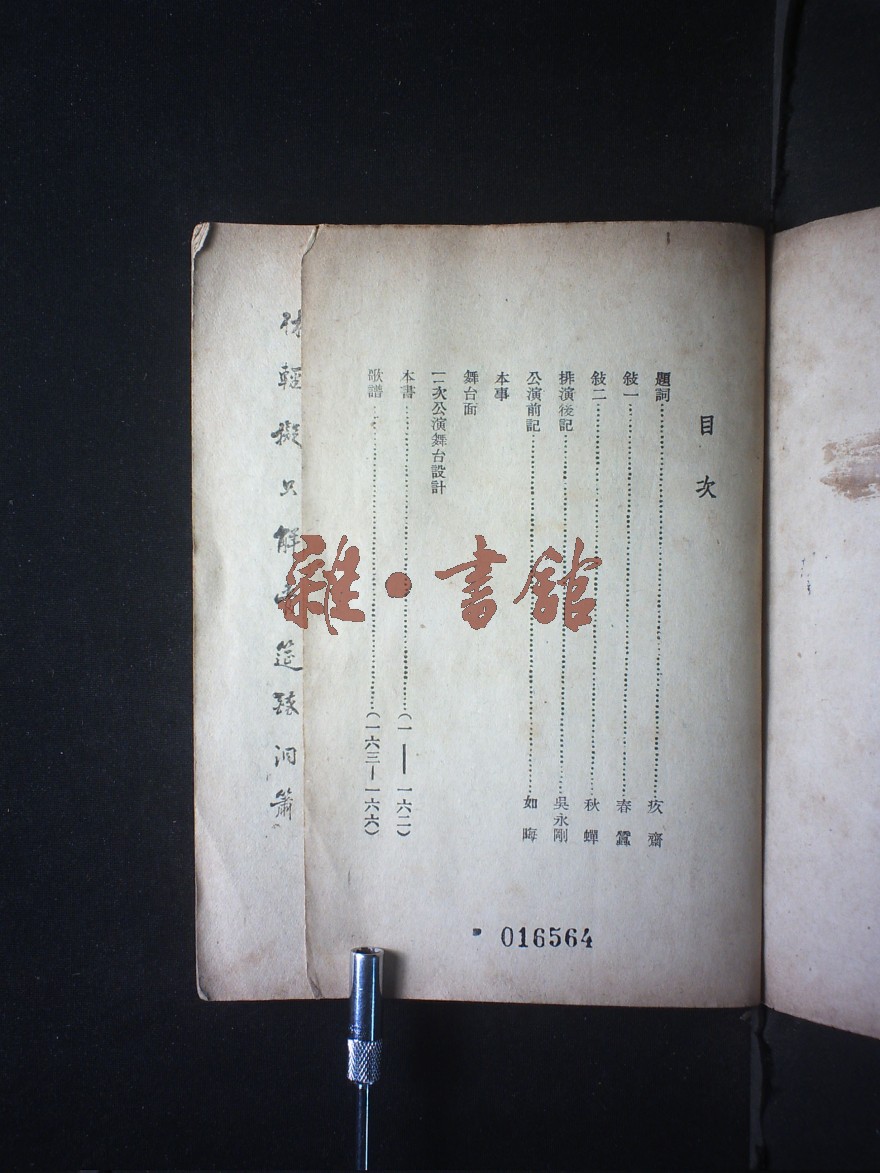 目次
題詞……疚齋
敍一……春蠶
敍二……秋蟬
排演後記……吳永剛
公演前記……如晦
本事
舞台面
一二次公演舞台設計
本書……(一——一六二)
歌譜……(一六三—一六六)
016564
輕擬只解
洞簫
雜·書館